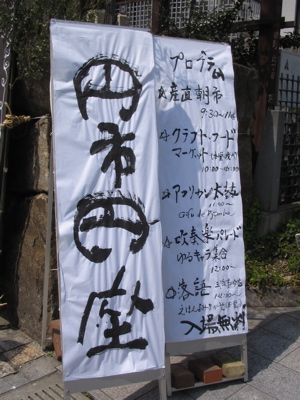 円市円座
プログラム
産直朝市
9:30〜11:00
クラフト・フード
マーケット
10:00〜16:00
アフリカン太鼓
吹奏楽パレード
ゆるキャラ集合
12:00〜
落語
入場無料